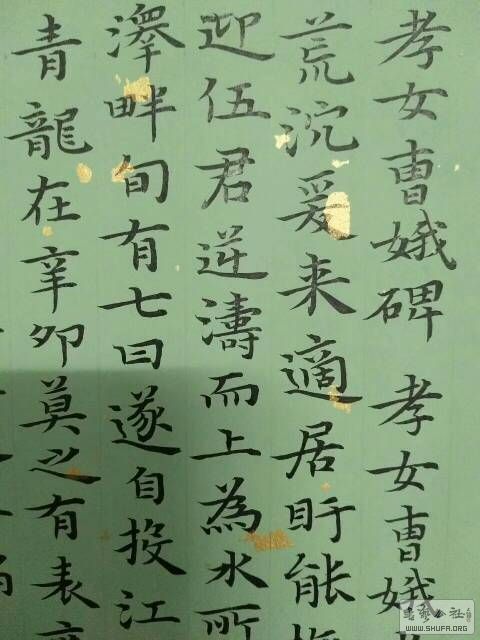 孝女曹娥碑 孝女曹娥
荒沉爰来適居盱能
迎伍君逆濤而上為水所
澤畔旬有七日遂自投江
青龍在辛卯莫之有表
WWW.SHUFA.ORG